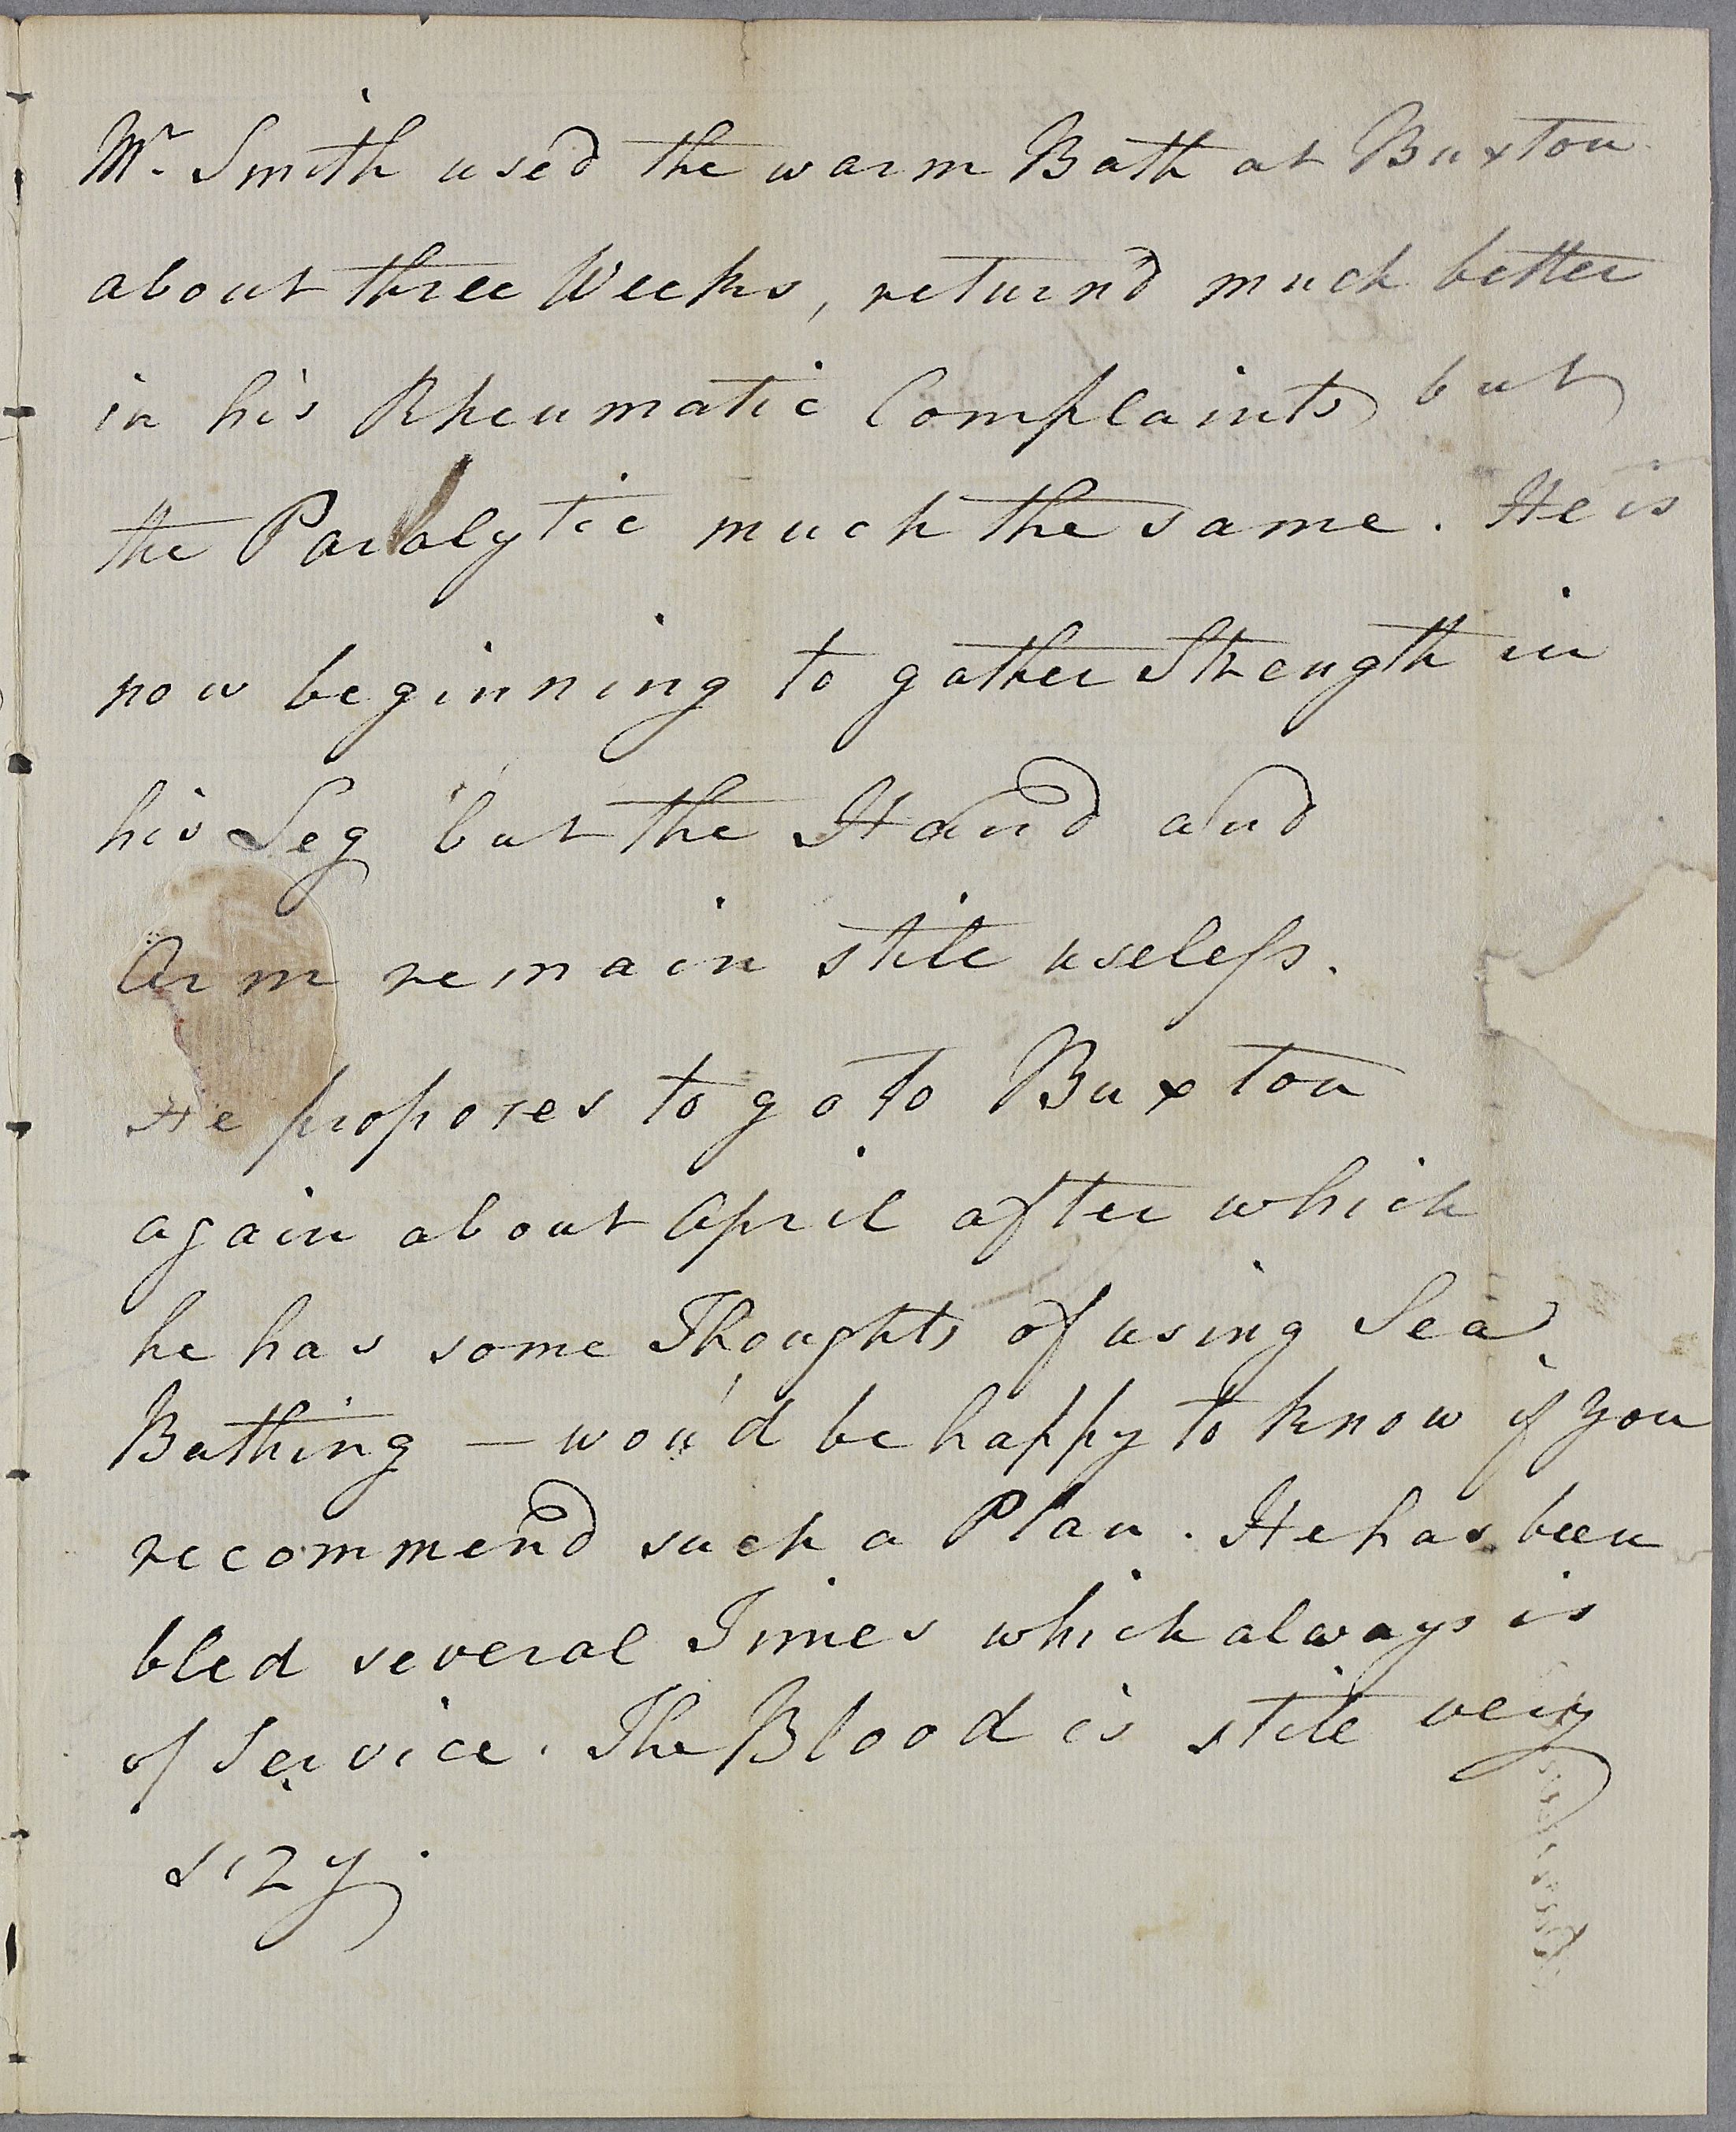 Mr Smith used the warm Bath at Buxton
about three Weeks, return'd much better
in his Rheumatic Complaints but
the Paralytic much the same. He is
now beginning to gather Strength in
his Leg but the Hand and
Arm remain still useleſs.
He proposes to go to Buxton
again about April after which
he has some Thoughts of using Sea
Bathing — wou'd be happy to know if you
recommend such a Plan. He has been
bled several Times which always is
of Service. The Blood is still very
sizy.